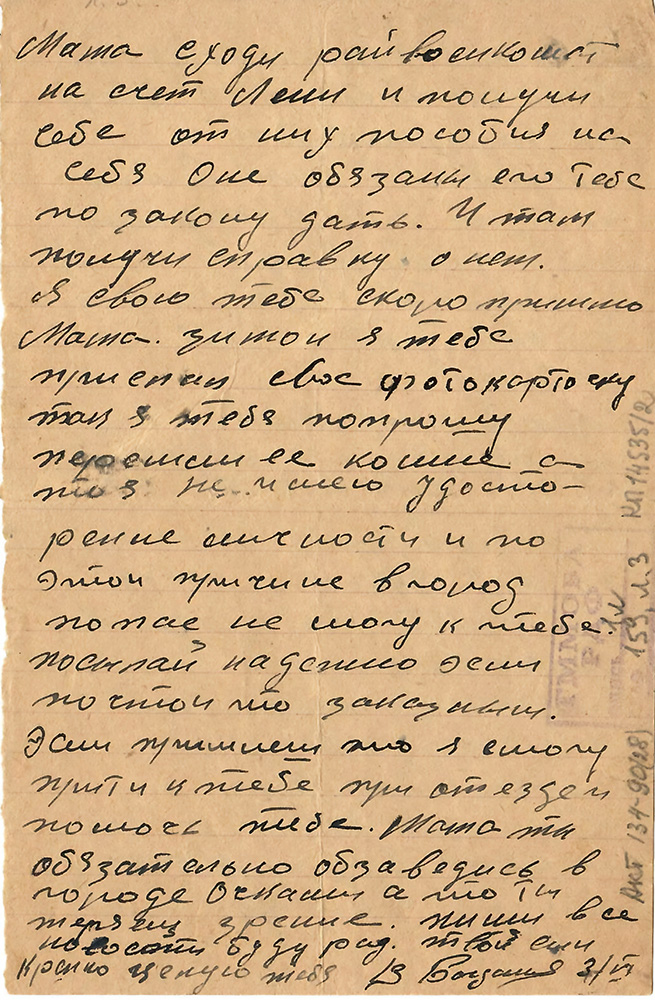 Мама сходи райвоенкомат
на счет Лени и получи
себе от них пособия на
себя Оне обязаны его тебе
по закону дать. И там
получи справку о нем.
Я свою тебе скоро пришлю
Мама. зимои я тебе
свое фотокарточку
так я тебя попрошу
перешли ее мне а
то я не имею удосто-
рение личности и по
этои причине в город
не смогу к тебе.
посылай надежно Если
почтои то заказным.
Если пришлеш то я смогу
прити к тебе при отезде и
помочь тебе. Мама ты
обязательно обзаведись в
городе Очками а то ты
теряеш зрение. пиши все
буду рад. твой сын
Крепко целую тебя В 3/VI
КП 14535/2
159, л.3
ГММОБЛ
Акт 134-90(28)